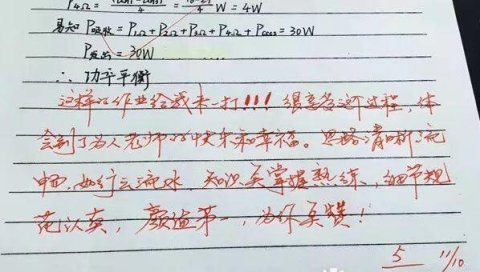 P4Ω = 4 W = 4W
易知 P吸收 = P1Ω + P2Ω + P3Ω + P4Ω + P = 30W
P发出 = 30W
∴ 功率平衡
这样的作业给我来一打!!! 很享受这过程,体
会到了为人老师的快乐和幸福。思路清晰流
畅,如行云流水,知识点掌握熟练,细节规
范认真,颜值第一,为你点赞!
5 11/10